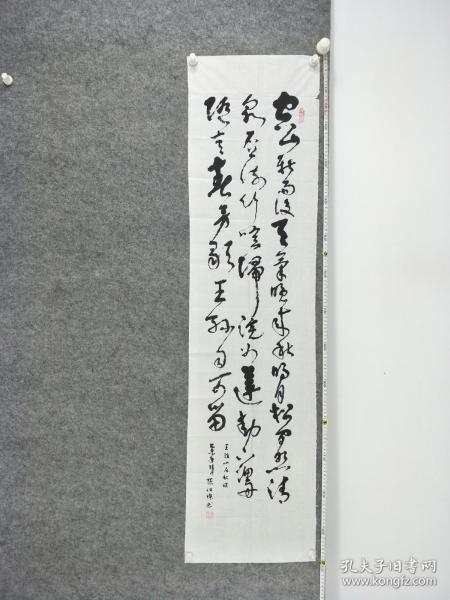 空山新雨後天氣晚來秋明月松間照清
泉石上流竹喧歸浣女蓮動下漁舟
隨意春芳歇王孫自可留
王維山居秋暝
孔夫子旧书网
www.kongfz.com